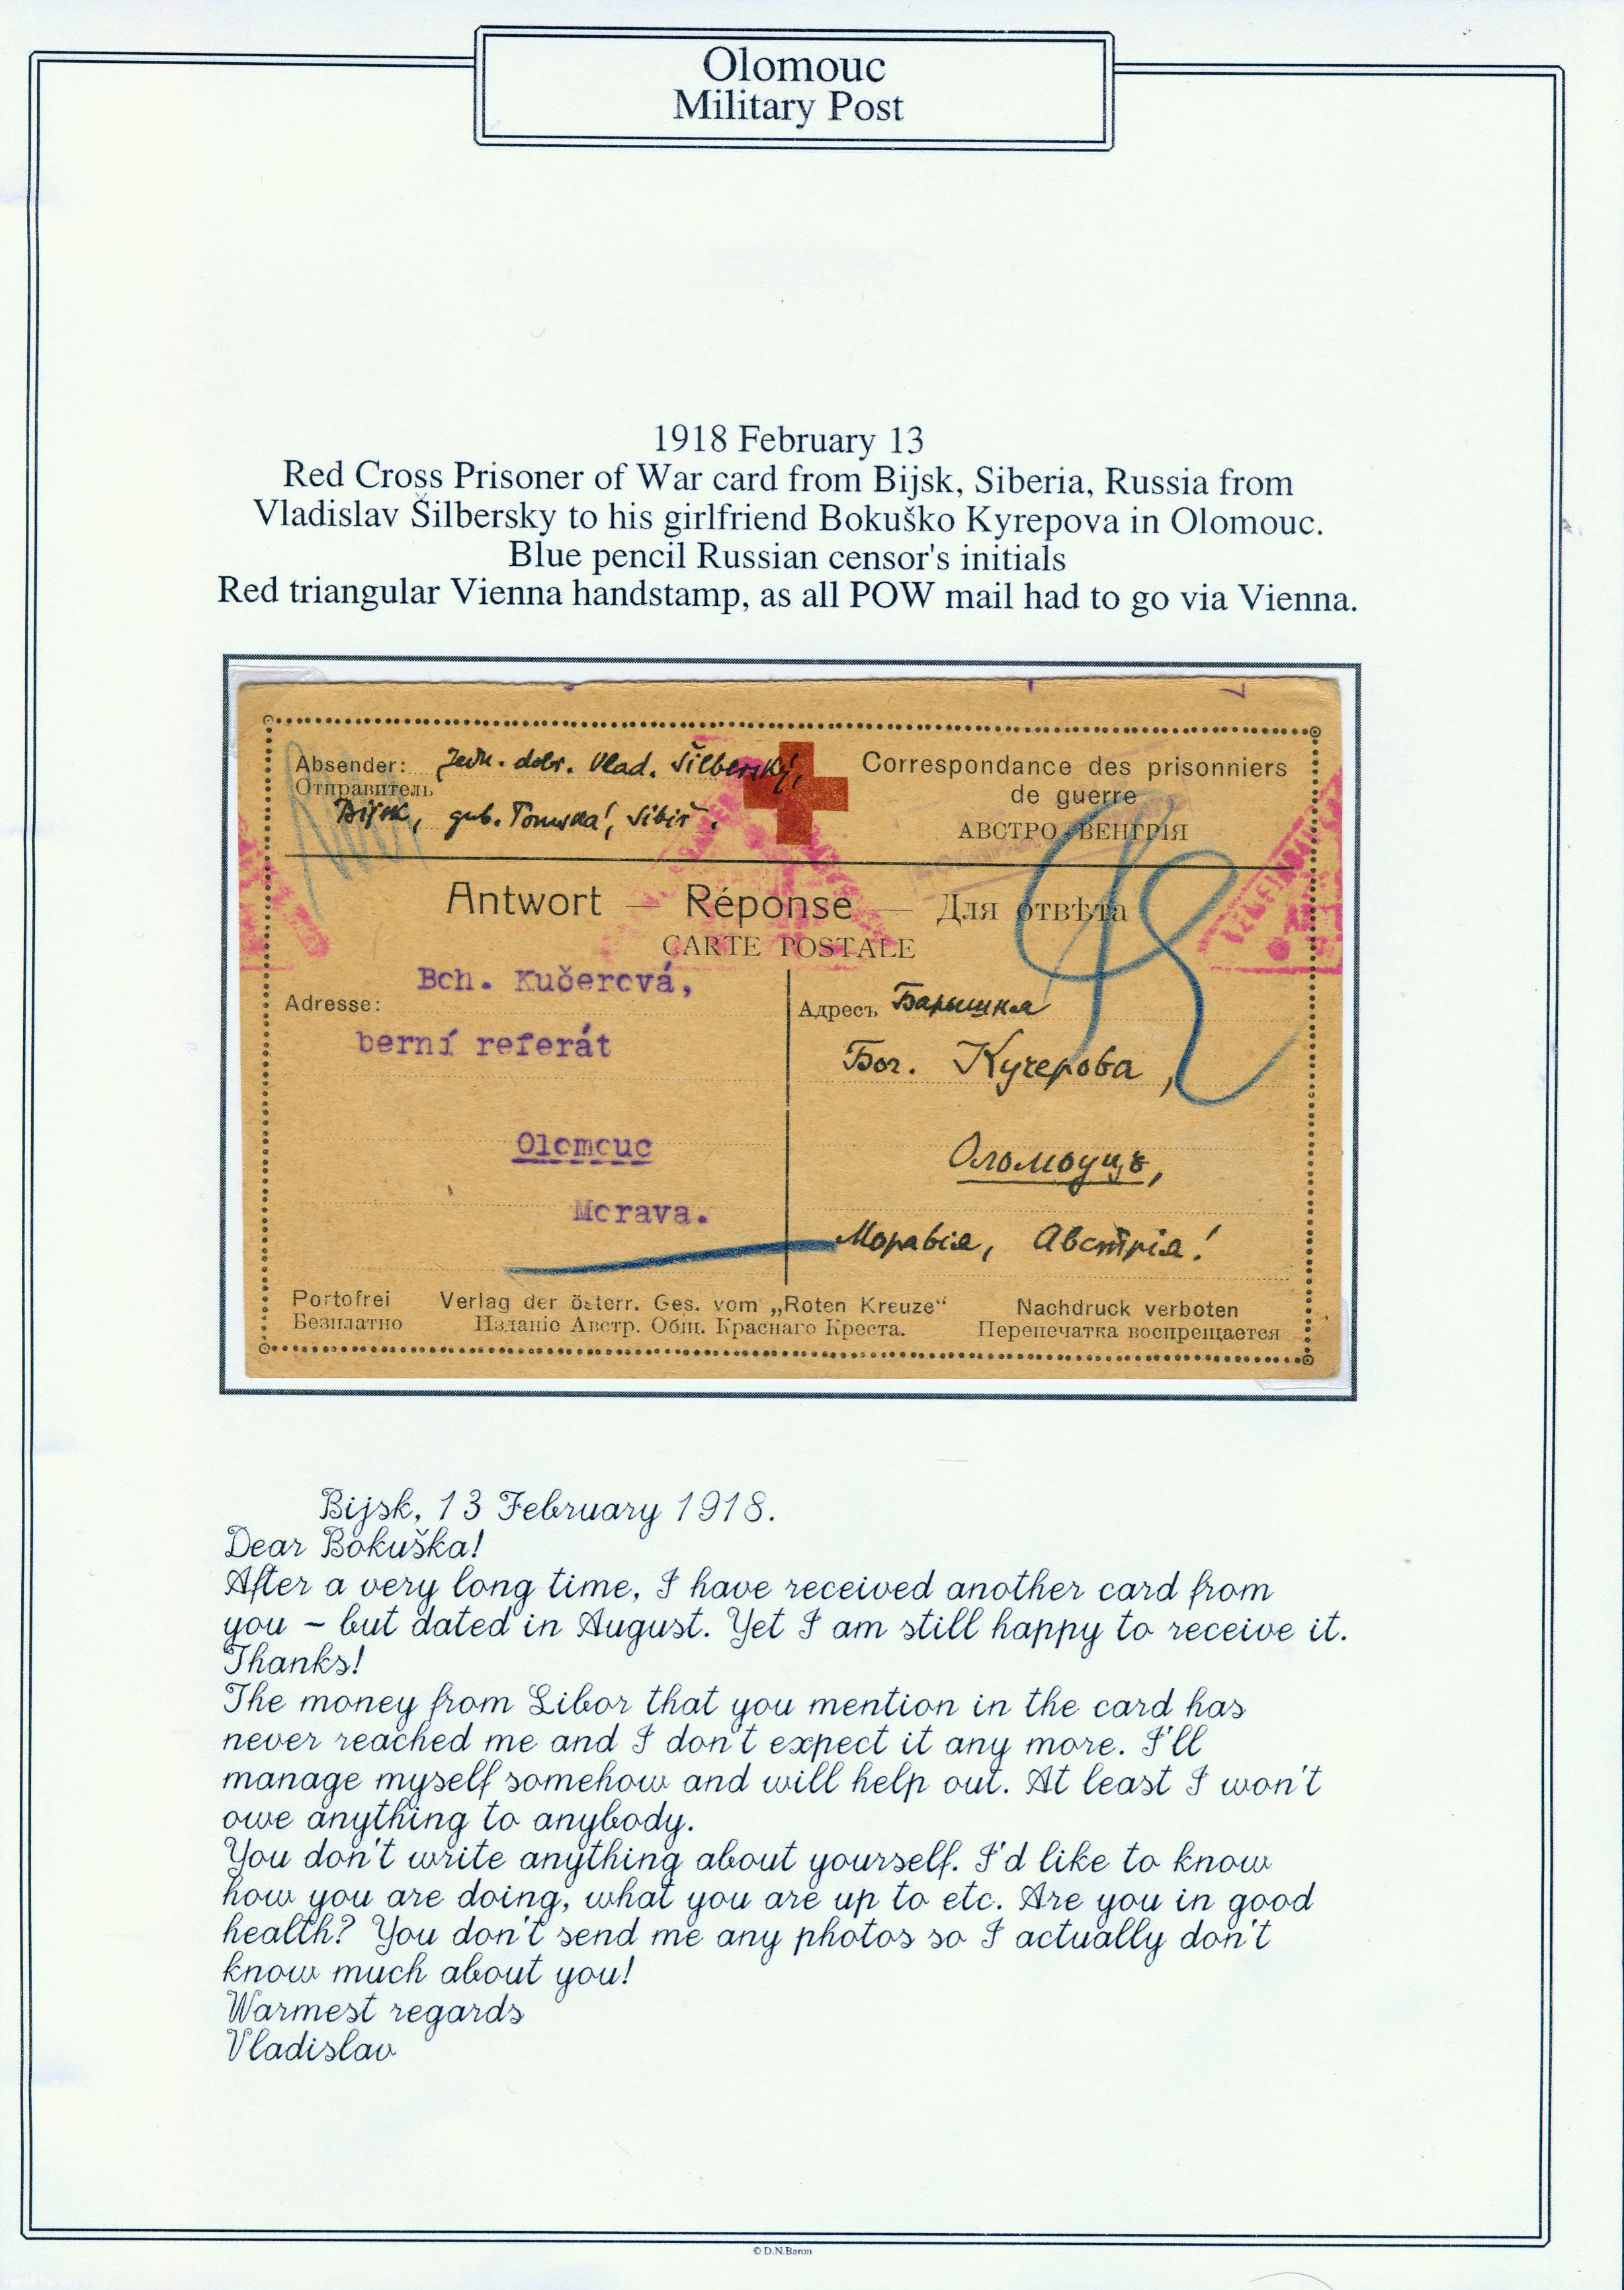 Olomouc
Military Post
1918 February 13
Red Cross Prisoner of War card from Bijsk, Siberia, Russia from
Vladislav Šilbersky to his girlfriend Bokuško Kyrepova in Olomouc.
Blue pencil Russian censor's initials
Red triangular Vienna handstamp, as all POW mail had to go via Vienna.
Absender: Jedn. dobr. Vlad. Šilberský,
Отправитель
Bijsk, gub. Tomska!, Sibiř.
Correspondance des prisonniers
de guerre
АВСТРО-ВЕНГРІЯ
Antwort — Réponse — Для отвѣта
CARTE POSTALE
Boh. Kučerová,
Adresse:
berní referát
Olomouc
Morava.
Адресъ Барышня
Бог. Кучерова,
Оломоуцъ,
Моравія, Австрія!
Portofrei Verlag der österr. Ges. vom „Roten Kreuze“ Nachdruck verboten
Безплатно Изданіе Австр. Общ. Краснаго Креста. Перепечатка воспрещается
Bijsk, 13 February 1918.
Dear Bokuška!
After a very long time, I have received another card from
you - but dated in August. Yet I am still happy to receive it.
Thanks!
The money from Libor that you mention in the card has
never reached me and I don't expect it any more. I'll
manage myself somehow and will help out. At least I won't
owe anything to anybody.
You don't write anything about yourself. I'd like to know
how you are doing, what you are up to etc. Are you in good
health? You don't send me any photos so I actually don't
know much about you!
Warmest regards
Vladislav
© D.N.Baron
Derek Baron